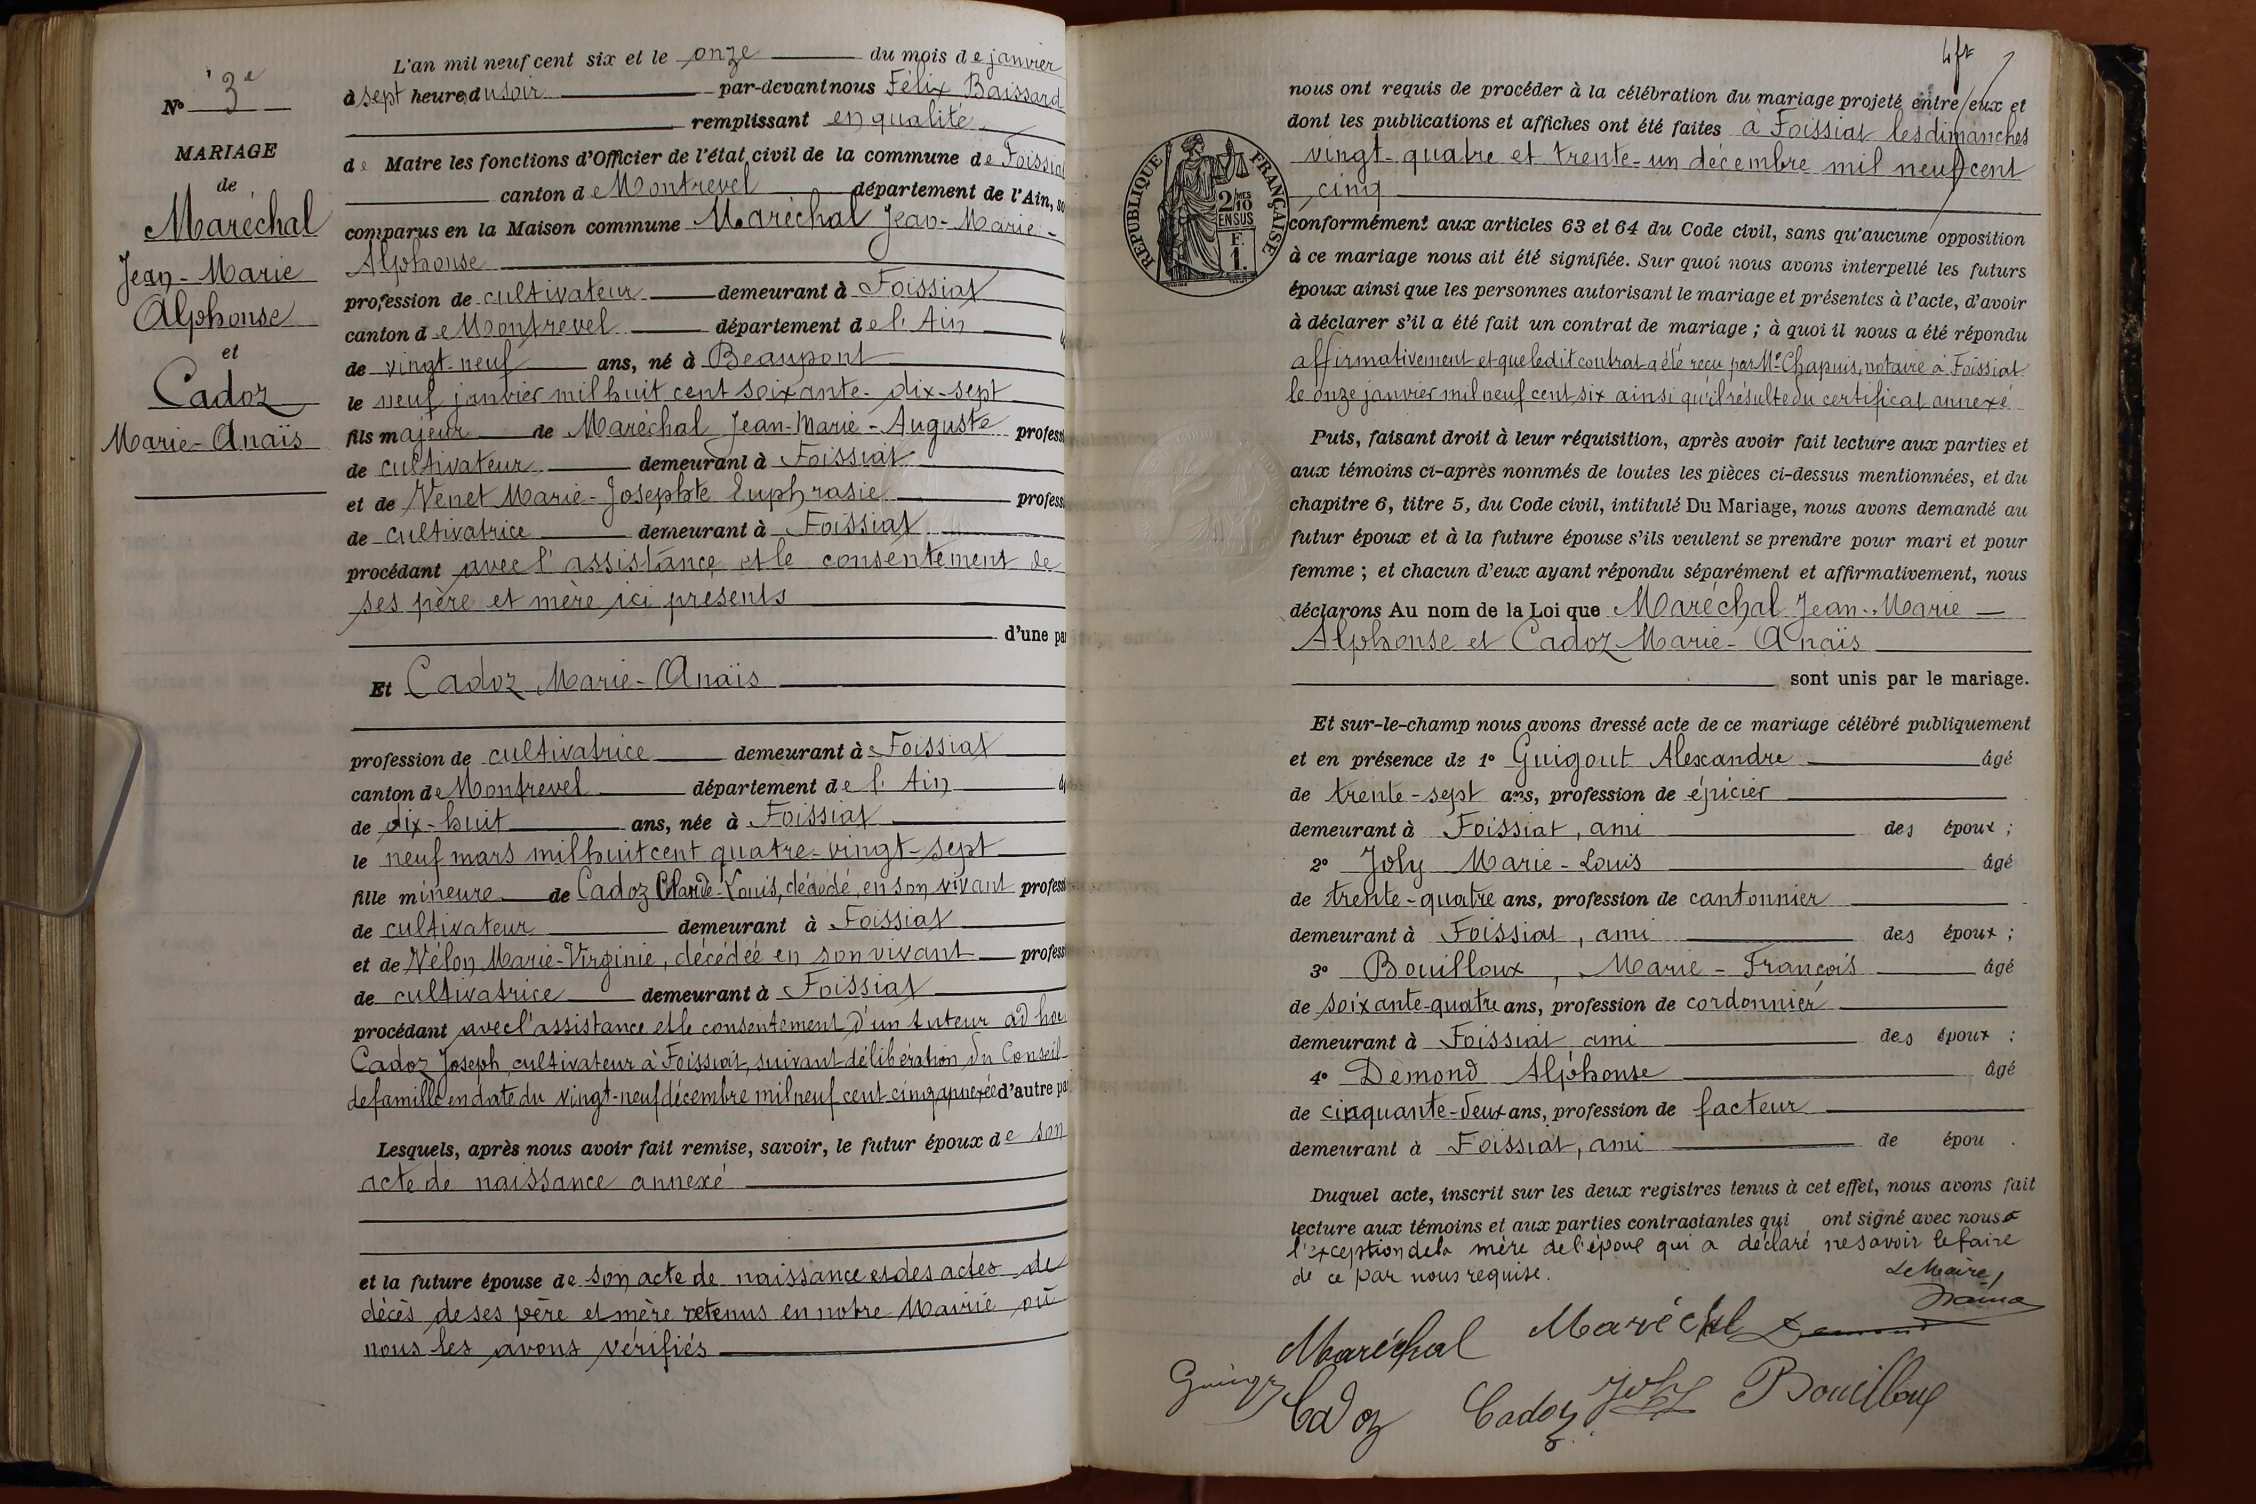 N° 3e
MARIAGE
de
Maréchal
Jean-Marie
Alphonse
et
Cadoz
Marie-Anaïs
L'an mil neuf cent six et le onze du mois de janvier
à sept heure du soir par-devant nous Félix Baissard
remplissant en qualité
de Maire les fonctions d'Officier de l'état civil de la commune de Foissiat
canton de Montrevel département de l'Ain, so
comparus en la Maison commune Maréchal Jean-Marie-
Alphonse
profession de cultivateur demeurant à Foissiat
canton de Montrevel département de l'Ain
de vingt-neuf ans, né à Beaupont
le neuf janvier mil huit cent soixante-dix-sept
fils majeur de Maréchal Jean-Marie-Auguste profess
de cultivateur demeurant à Foissiat
et de Venet Marie-Josephte Euphrasie profess
de cultivatrice demeurant à Foissiat
procédant avec l'assistance et le consentement de
ses père et mère ici présents
d'une pa
Et Cadoz Marie-Anaïs
profession de cultivatrice demeurant à Foissiat
canton de Montrevel département de l'Ain
de dix-huit ans, née à Foissiat
le neuf mars mil huit cent quatre-vingt-sept
fille mineure de Cadoz Claude-Louis, décédé, en son vivant profess
de cultivateur demeurant à Foissiat
et de Vélon Marie-Virginie, décédée en son vivant profess
de cultivatrice demeurant à Foissiat
procédant avec l'assistance et le consentement d'un tuteur ad hoc
Cadoz Joseph, cultivateur à Foissiat, suivant délibération du Conseil
de famille en date du vingt-neuf décembre mil neuf cent cinq annexée d'autre pa
Lesquels, après nous avoir fait remise, savoir, le futur époux de son
acte de naissance annexé
et la future épouse de son acte de naissance et des actes de
décès de ses père et mère retenus en notre Mairie où
nous les avons vérifiés
4 ft
nous ont requis de procéder à la célébration du mariage projeté entre eux et
dont les publications et affiches ont été faites à Foissiat les dimanches
vingt-quatre et trente-un décembre mil neuf cent
cinq
RÉPUBLIQUE FRANÇAISE
2/10 MES
EN SUS
F.
1.
conformément aux articles 63 et 64 du Code civil, sans qu'aucune opposition
à ce mariage nous ait été signifiée. Sur quoi nous avons interpellé les futurs
époux ainsi que les personnes autorisant le mariage et présentes à l'acte, d'avoir
à déclarer s'il a été fait un contrat de mariage ; à quoi il nous a été répondu
affirmativement et que ledit contrat a été reçu par Me Chapuis, notaire à Foissiat
le onze janvier mil neuf cent six ainsi qu'il résulte du certificat annexé
Puis, faisant droit à leur réquisition, après avoir fait lecture aux parties et
aux témoins ci-après nommés de toutes les pièces ci-dessus mentionnées, et du
chapitre 6, titre 5, du Code civil, intitulé Du Mariage, nous avons demandé au
futur époux et à la future épouse s'ils veulent se prendre pour mari et pour
femme ; et chacun d'eux ayant répondu séparément et affirmativement, nous
déclarons Au nom de la Loi que Maréchal Jean-Marie
Alphonse et Cadoz Marie-Anaïs
sont unis par le mariage.
Et sur-le-champ nous avons dressé acte de ce mariage célébré publiquement
et en présence de 1° Guigout Alexandre âgé
de trente-sept ans, profession de épicier
demeurant à Foissiat, ami des époux ;
2° Joly Marie-Louis âgé
de trente-quatre ans, profession de cantonnier
demeurant à Foissiat, ami des époux ;
3° Bouilloux, Marie-François âgé
de soixante-quatre ans, profession de cordonnier
demeurant à Foissiat ami des époux ;
4° Demond Alphonse âgé
de cinquante-deux ans, profession de facteur
demeurant à Foissiat, ami de épou .
Duquel acte, inscrit sur les deux registres tenus à cet effet, nous avons fait
lecture aux témoins et aux parties contractantes qui ont signé avec nous à
l'exception de la mère de l'époux qui a déclaré ne savoir le faire
de ce par nous requise.
Le Maire,
Maréchal Maréchal Demond
Cadoz Cadoz Joly Bouilloux